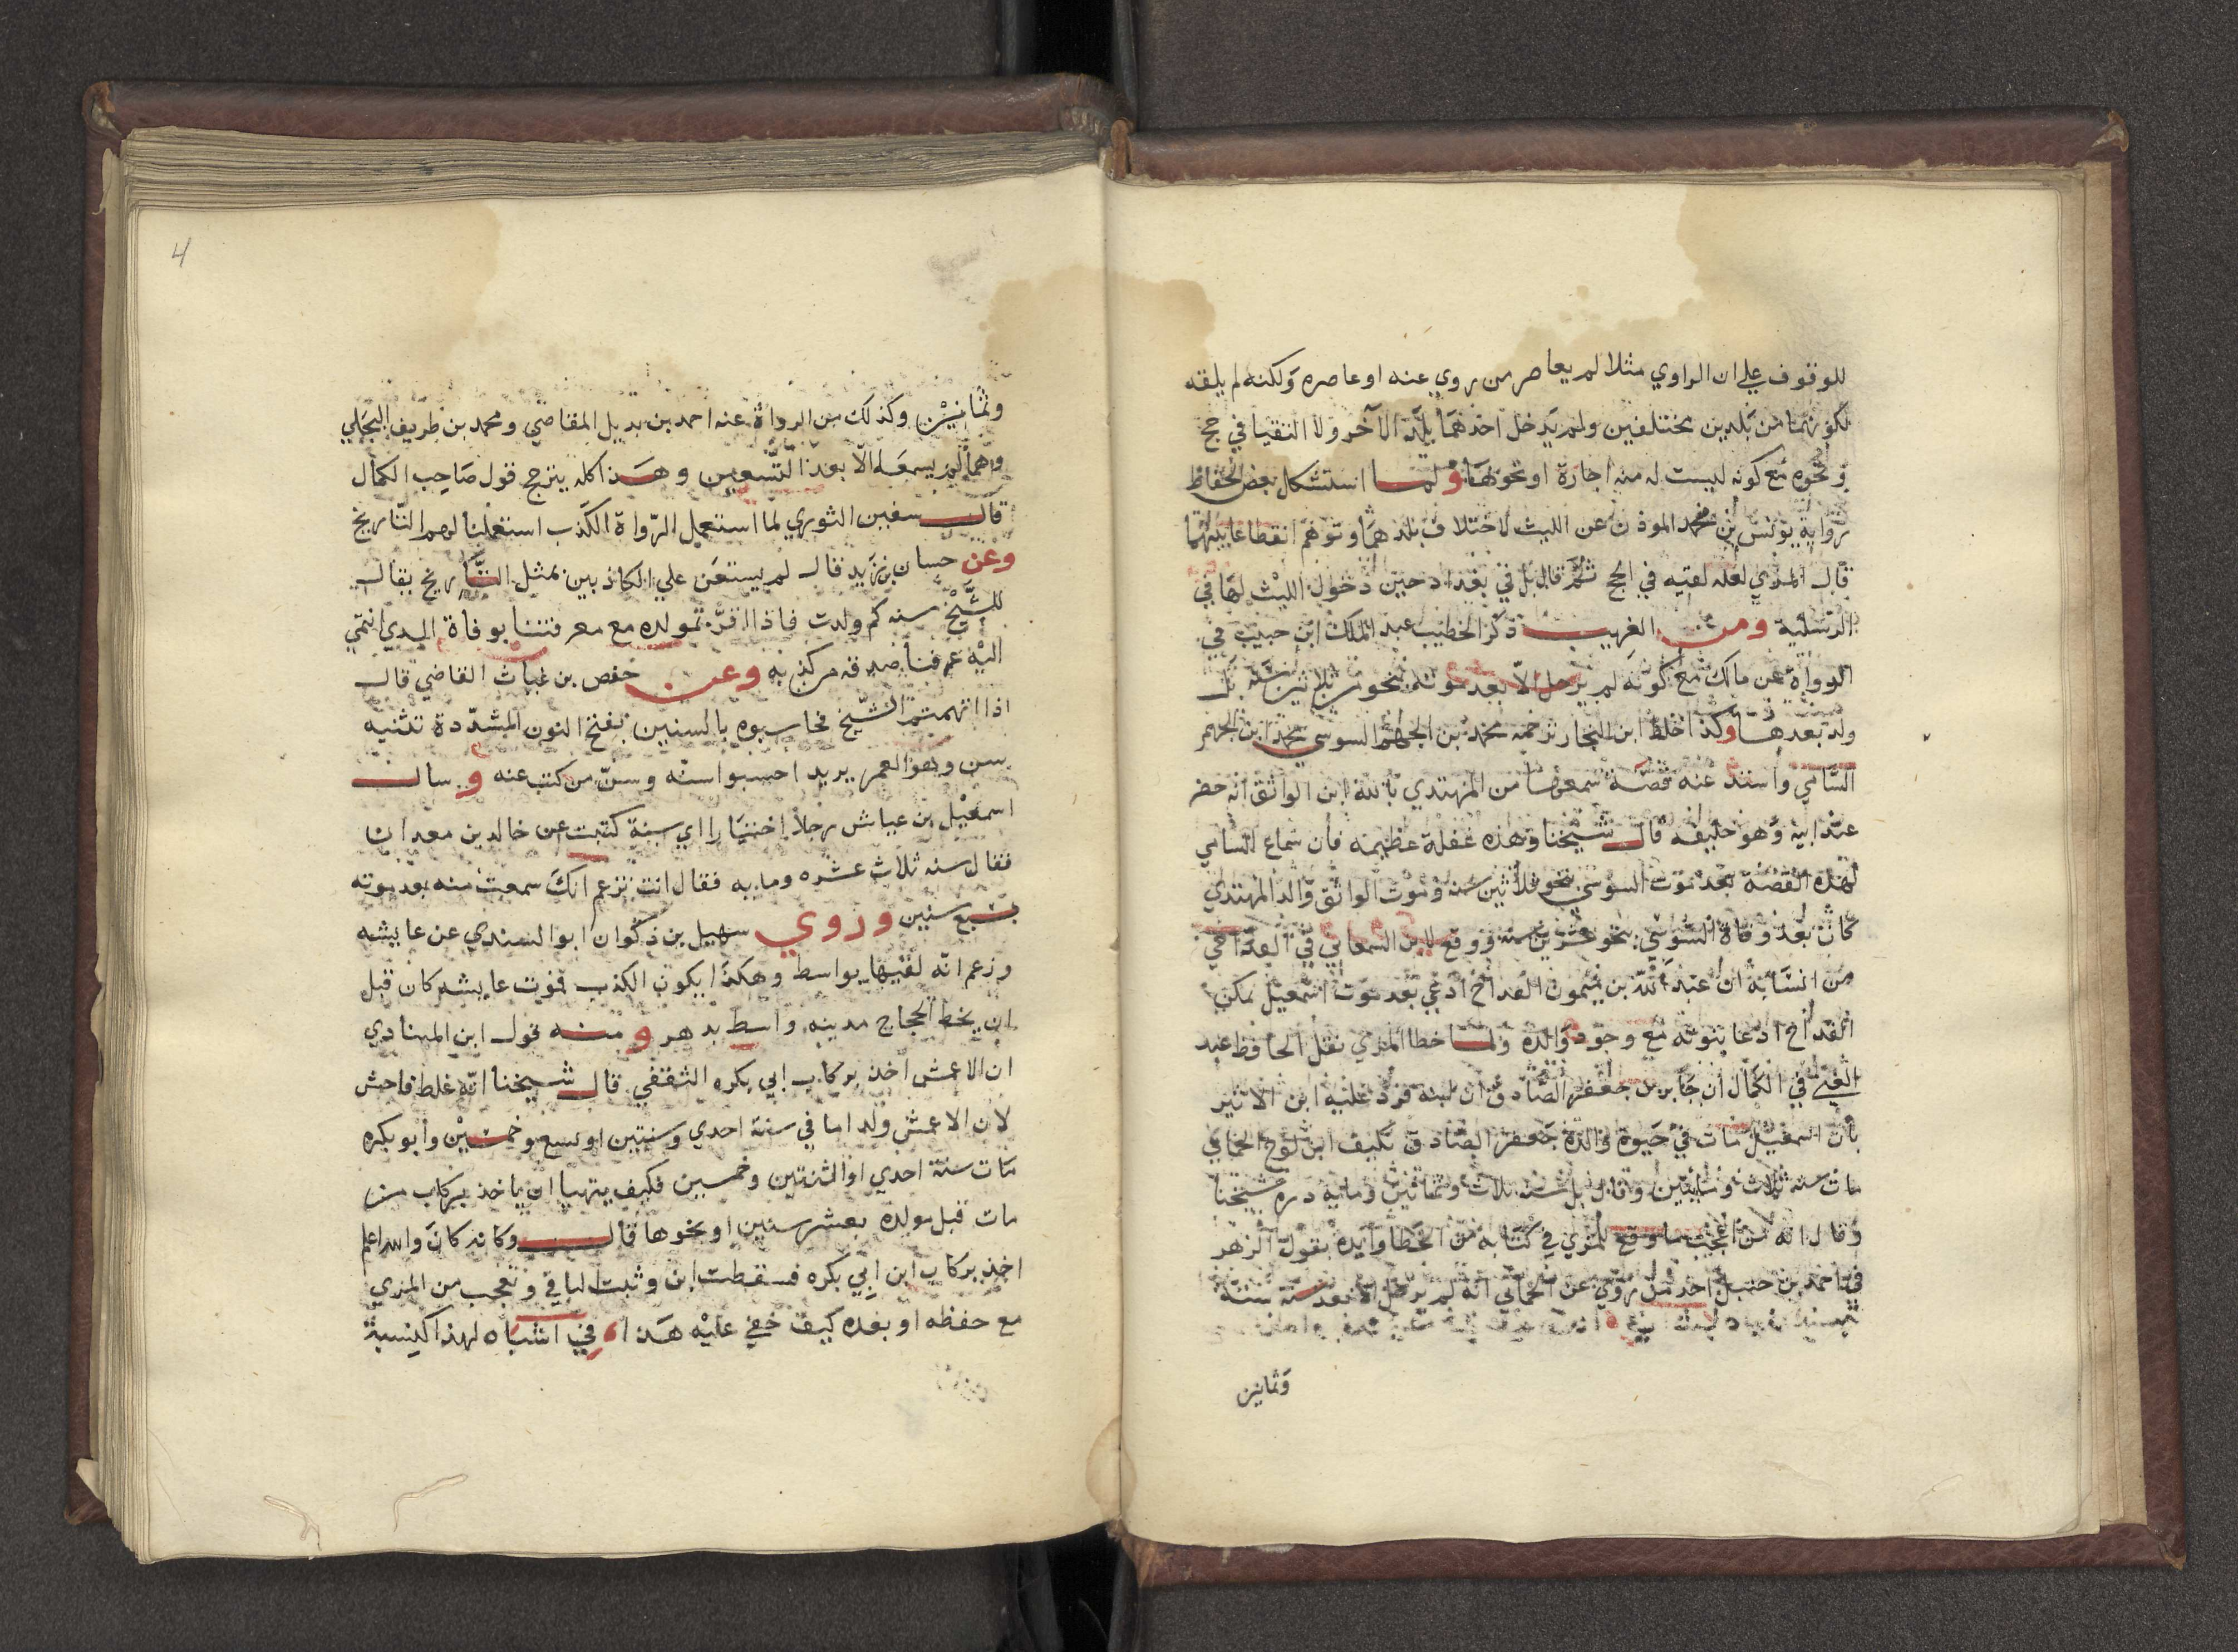 للوقوف علي ان الراوي مثلا لم يعاصر من روي عنه او عاصره ولكنه لم يلقه
لكونهما من بلدين مختلفين ولم يدخل احدهما بلد الآخر ولا التقيا في حج
ونحوه مع كونه ليست له منه اجازة او نحوها ولما استشكل بعض الحفاظ
رواية يونس بن محمد الموذن عن الليث لاختلاف بلدهما وتوهم انقطاعا بينهما
قال المزي لعله لقيه في الحج ثم قال بل في بغداد حين دخول الليث لها في
الرسلية ومن الغريب ذكر الخطيب عبد الملك ابن حبيب في
الرواة عن مالك مع كونه لم يرحل الا بعد موته بنحو ثلاثين سنة بل
ولد بعدها وكذا خلط ابن النجار ترجمة محمد بن الجهم السوسي بمحمد ابن الجهم
السامي واسند عنه قصة سمعها من المهتدي بالله ابن الواثق انه حضر
عند ابيه وهو خليفه قال شيخنا وهذه غفلة عظيمه فان سماع السامي
لهذه القصة بعد موت السوسي بنحو ثلاثين سنه وموت الواثق والد المهتدي
كان بعد وفاة السوسي بنحو عشرين سنه ووقع لابن السمعاني في القداحي
من انسابه ان عبد الله بن ميمون القداح ادعي بعد موت اسمعيل
القداح ادعا بنوته مع وجود والده ولما خطا المزي نقل الحافظ عبد
الغني في الكمال ان جابر بن جعفر الصادق ان ابنه فرد عليه ابن الاثير
بان اسمعيل مات في حيوة والده جعفر الصادق فكيف
مات سنه ثلاث ومايتين وقال بل سنه ثلاث وثمانين ومايه درم شيخنا
وقال انه من اعجب ما وقع للمزي في كتابه من الخطا وايده بقول الزهر
في احمد بن حنبل احد من روي عن الحماني انه لم يرحل الا بعد سنة ستة
وثمانين
4
وثمانين وكذلك من الرواة عنه احمد بن بديل القاضي ومحمد بن طريف البجلي
وهما لم يسمعا الا بعد التسعين وهذا كله يترجح قول صاحب الكمال
قال سفين الثوري لما استعمل الرواة الكذب استعملنا لهم التاريخ
وعن حسان بن زيد قال لم يستعن علي الكاذبين بمثل التاريخ يقال
للشيخ سنه كم ولدت فاذا اقر بمولده مع معرفتنا بوفاة الذي انتمي
اليه عرفنا صدقه من كذبه وعن حفص بن غياث القاضي قال
اذا اتهمتم الشيخ فحاسبوه بالسنين بفتح النون المشددة تثنيه
سن وهو العمر يريد احسبوا سنه وسن من كتب عنه وسال
اسمعيل بن عياش رجلا اختيارا اي سنة كتبت عن خالد بن معدان
فقال سنه ثلاث عشره ومايه فقال انت تزعم انك سمعت منه بعد موته
بسبع سنين وروي سهيل بن ذكوان ابو السندي عن عايشه
وزعم انه لقيها بواسط وهكذا يكون الكذب فموت عايشه كان قبل
ان يخط الحجاج مدينه واسط بدهر ومنه قول ابن المنادي
ان الاعمش اخذ بركاب ابي بكره الثقفي قال شيخنا انه غلط فاحش
لان الاعمش ولد اما في سنة احدي وستين او تسع وخمسين وابو بكره
مات سنة احدي او اثنتين وخمسين فكيف يتهيا ان ياخذ بركاب من
مات قبل مولده بعشر سنين او نحوها قال وكانه كان والله اعلم
اخذ بركاب ابن ابي بكره فسقطت ابن وثبت الباقي وتعجب من المزي
مع حفظه او بعده كيف خفي عليه هذا في اشباه لهذا كنسبة